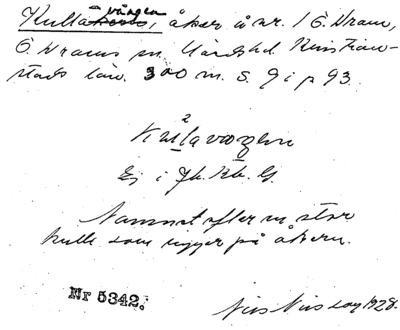 Kullavången, åker å nr. 1 Ö. Wram,
Ö. Wrams sn. Gärds hd Kristian-
stads län. 300 m. S. g i p 93.
Kullavången
Ej i Jb. G.
Namnet efter en stor
kulle som ligger på åkern.
Nr 5342.
Nils Nilsson 1928.